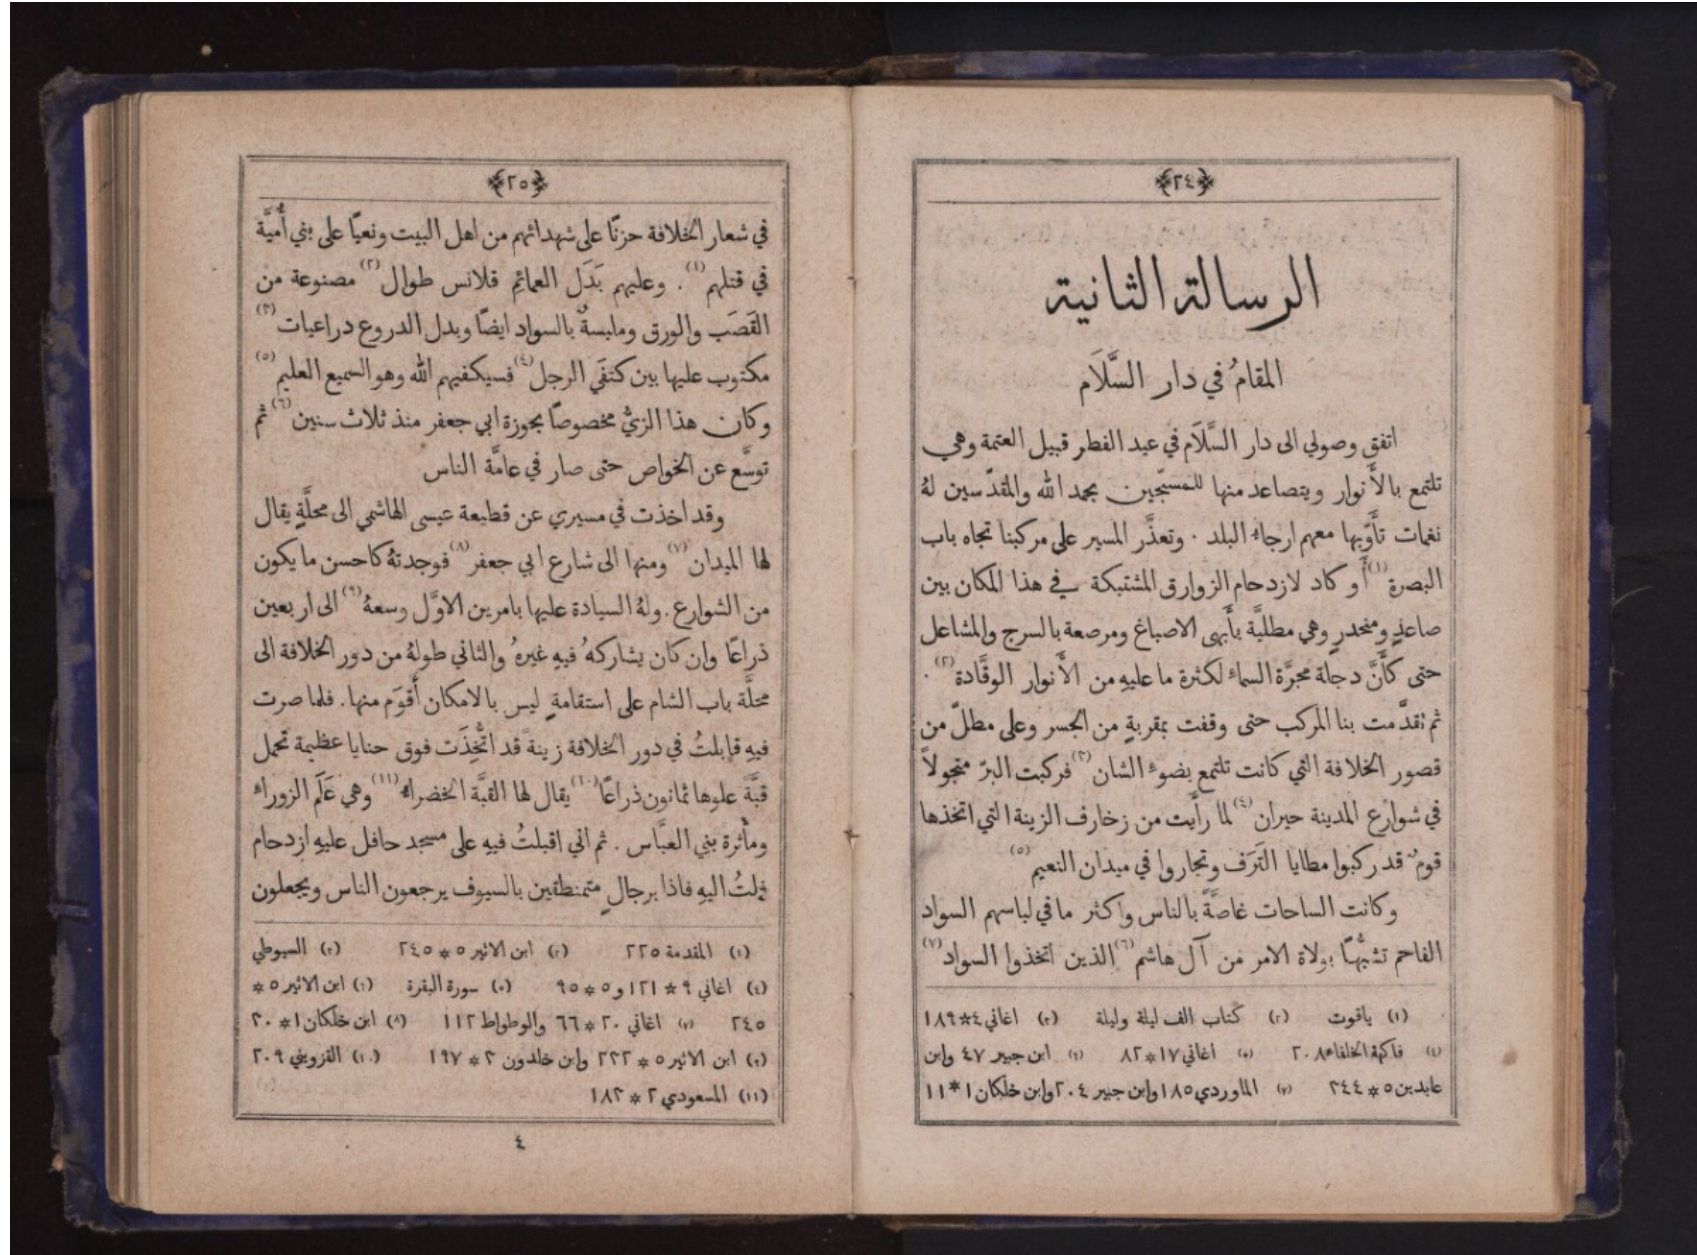 ﴿٢٤﴾
الرسالة الثانية
المقامُ في دار السَّلَام
اتفق وصولي الى دار السَّلَام في عيد الفطر قبيل العتمة وهي
تلتمع بالأَنوار ويتصاعد منها للمسبّحين بحمد الله والمقدّسين لهُ
نغمات تأَوّبها معهم ارجاءُ البلد . وتعذَّر المسير على مركبنا تجاه باب
البصرة (١) أَو كاد لازدحام الزوارق المشتبكة في هذا المكان بين
صاعدٍ ومنحدرٍ وهي مطليَّة بأَبهى الاصباغ ومرصعة بالسرج والمشاعل
حتى كأَنَّ دجلة مجرَّة السماءِ لكثرة ما عليهِ من الأَنوار الوقَّادة (٢) .
ثم تقدَّمت بنا المركب حتى وقفت بمقربةٍ من الجسر وعلى مطلّ من
قصور الخلافة التي كانت تلتمع بضوءِ الشان (٣) فركبت البرّ متجولاً
في شوارع المدينة حيران (٤) لما رأَيت من زخارف الزينة التي اتخذها
قومٌ قد ركبوا مطايا التَرَف وتجاروا في ميدان النعيم (٥)
وكانت الساحات غاصَّةً بالناس واكثر ما في لباسهم السواد
الفاحم تشبُّهًا بولاة الامر من آل هاشم (٦) الذين اتخذوا السواد (٧)
(١) ياقوت (٢) كتاب الف ليلة وليلة (٣) اغاني ٤*١٨٩
(٤) فاكهة الخلفاء ٢٠٨ (٥) أغاني ١٧*٨٢ (٦) ابن جبير ٤٧ وابن
عابدين ٥*٢٤٤ (٧) الماوردي ١٨٥ وابن جبير ٢٠٤ وابن خلكان ١*١١
﴿٢٥﴾
في شعار الخلافة حزنًا على شهدائهم من اهل البيت ونعيًا على بني أُميَّة
في قتلهم (١) . وعليهم بَدَل العمائِم قلانس طوال (٢) مصنوعة من
القَصَب والورق وملبسةٌ بالسواد ايضًا وبدل الدروع دراعيات (٣)
مكتوب عليها بين كتفَي الرجل (٤) فسيكفيهم الله وهو السميع العليم (٥)
وكان هذا الزيُّ مخصوصًا بحوزة ابي جعفر منذ ثلاث سنين (٦) ثم
توسَّع عن الخواص حتى صار في عامَّة الناس
وقد اخذت في مسيري عن قطيعة عيسى الهاشمي الى محلَّةٍ يقال
لها الميدان (٧) ومنها الى شارع ابي جعفر (٨) فوجدتهُ كاحسن ما يكون
من الشوارع . ولهُ السيادة عليها بامرين الاوَّل وسعهُ (٩) الى اربعين
ذراعًا وان كان يشاركهُ فيهِ غيرهُ والثاني طولهُ من دور الخلافة الى
محلَّة باب الشام على استقامةٍ ليس بالامكان أَقوَم منها . فلما صرت
فيهِ قابلتُ في دور الخلافة زينةً قد اتُّخِذَت فوق حنايا عظيمة تحمل
قبَّة علوها ثمانون ذراعًا (١٠) يقال لها القبَّة الخضراءُ (١١) وهي عَلَم الزوراءِ
ومأْثرة بني العبَّاس . ثم اني اقبلتُ فيهِ على مسجد حافل عليهِ ازدحام
فملتُ اليهِ فاذا برجالٍ متمنطقين بالسيوف يرجعون الناس ويجعلون
(١) المقدمة ٢٢٥ (٢) ابن الاثير ٥*٢٤٥ (٣) السيوطي
(٤) اغاني ٩*١٢١ و٥*٩٥ (٥) سورة البقرة (٦) ابن الاثير ٥*
٢٤٥ (٧) اغاني ٢٠*٦٦ والوطواط ١١٢ (٨) ابن خلكان ١*٣٠
(٩) ابن الاثير ٥*٢٢٢ وابن خلدون ٣*١٩٧ (١٠) القزويني ٢٠٩
(١١) المسعودي ٢*١٨٢
٤